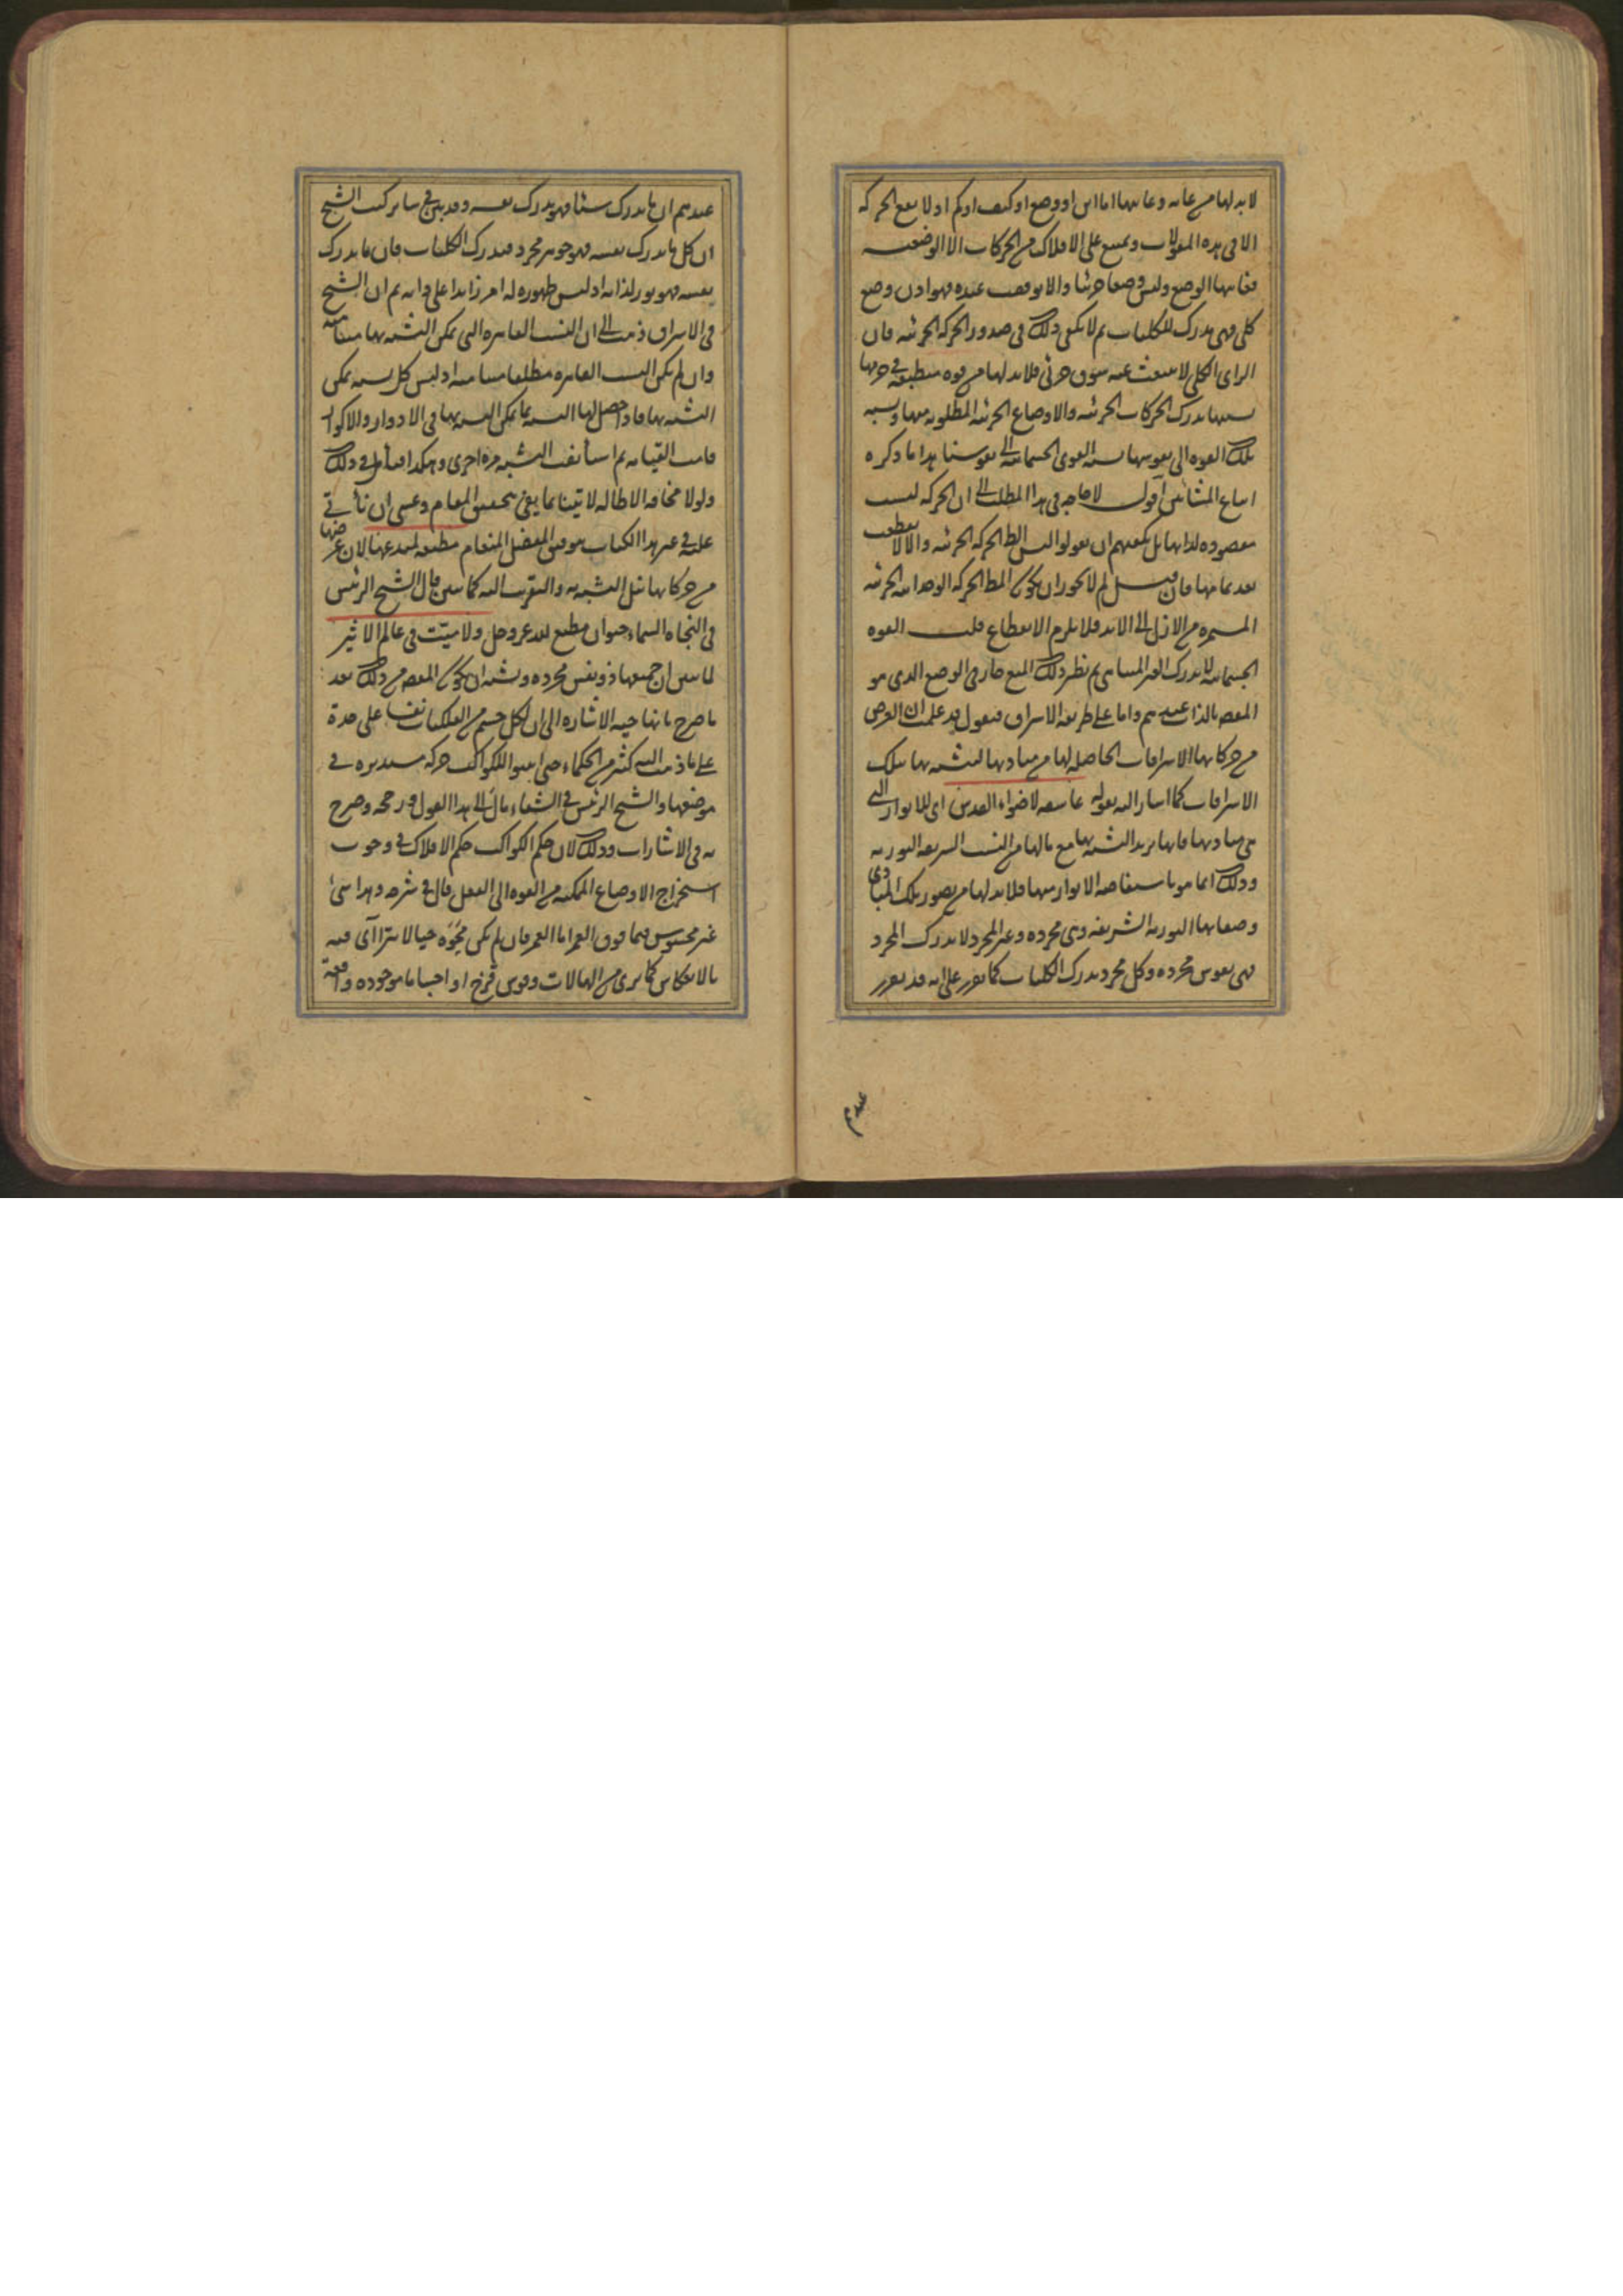 لابد لها من غاية وغايتها اما اين او وضع او كيف او كم اذ لا يقع الحركة
الا في هذه المقولات ويمتنع على الافلاك من الحركات الا الوضعية
فغايتها الوضع وليس وضعا جزئيا والا لوقفت عنده فهو اذن وضع
كلي فهي مدرك للكليات ثم لا يكفي ذلك في صدور الحركة الجزئية فان
الراي الكلي لا ينبعث عنه شوق جزئي فلابد لها من قوة منطبعة في جرمها
بها يدرك الحركات الجزئية والاوضاع الجزئية المطلوبة منها ونسبة
تلك القوة الى نفوسها نسبة القوى الجسمانية الى نفوسنا هذا ما ذكره
اتباع المشائين اقول لا حاجة في هذا المطلب الى ان الحركة ليست
مقصودة لذاتها بل يكفيهم ان يقولوا ليس المط الحركة الجزئية والا لانقطعت
بعد تمامها فان قيل لم لا يجوز ان يكون المط الحركة الواحدانية الجزئية
المستمرة من الازل الى الابد فلا يلزم الانقطاع قلت القوة
الجسمانية لا يدرك الغير المتناهي ثم نظير ذلك المنع جار في الوضع الذي هو
المقصد بالذات عندهم واما على طريقة الاشراق فنقول قد علمت ان الغرض
من حركاتها الاشراقات الحاصلة لها من مباديها لتشبه بها بتلك
الاشراقات كما اشار اليه بقوله عاشقة لاضواء القدس اى للانوار التي
هي مباديها فانها تريد التشبه بها مع مالها من النسب الشريفة النورية
وذلك انما هو باستفاضة الانوار منها فلابد لها من تصور تلك المبادي
وصفاتها النورية الشريفة وهي مجردة وغير المجرد لا يدرك المجرد
فهي نفوس مجردة وكل مجرد يدرك الكليات كما تقرر على انه قد تقرر
عندهم
عندهم ان ما يدرك شيئا فهو يدرك نفسه وقد بين في ساير كتب الشيخ
ان كل ما يدرك نفسه فهو جوهر مجرد فيدرك الكليات فان ما يدرك
نفسه فهو نور لذاته اذ ليس ظهوره له امر زايدا على ذاته ثم ان الشيخ
في الاشراق ذهب الى ان النسب القاهرة التي يمكن التشبه بها متناهية
وان لم يكن النسب القاهرة مطلقا متناهية اذ ليس كل نسبة يمكن
التشبه بها فاذا حصل لها التشبه بما يمكن التشبه بها في الادوار والاكوار
قامت القيامة ثم استأنفت التشبه مرة اخرى وهكذا فتأمل في ذلك
ولولا مخافة الاطالة لاتينا بما يفي بتحقيق المقام وعسى ان نأتي
عليه في غير هذا الكتاب بتوفيق المفضل المنعام مطيعة لمبدعها لان غرضها
من حركاتها نيل التشبه به والتقرب اليه كما بين قال الشيخ الرئيس
في النجاة السماء حيوان مطيع لله عز وجل ولا ميت في عالم الاثير
لما بين ان جميعها ذو نفس مجردة ويشبه ان يكون المقصد من ذلك بعد
ما صرح بانها حية الاشارة الى ان لكل جسم من الفلكيات نفسا على حدة
على ما ذهب اليه كثير من الحكماء حتى اثبتوا للكواكب حركة مستديرة في
موضعها والشيخ الرئيس في الشفاء مال الى هذا القول ورجحه وصرح
به في الاشارات وذلك لان حكم الكواكب حكم الافلاك في وجوب
استخراج الاوضاع الممكنة من القوة الى الفعل قال في شرحه وهذا شئ
غير محسوس فيما فوق القمر اما القمر فان لم يكن محوه خيالا يترا آى فيه
بالانعكاس كما يرى من الهالات وقوس قزح او اجساما موجودة واقعة